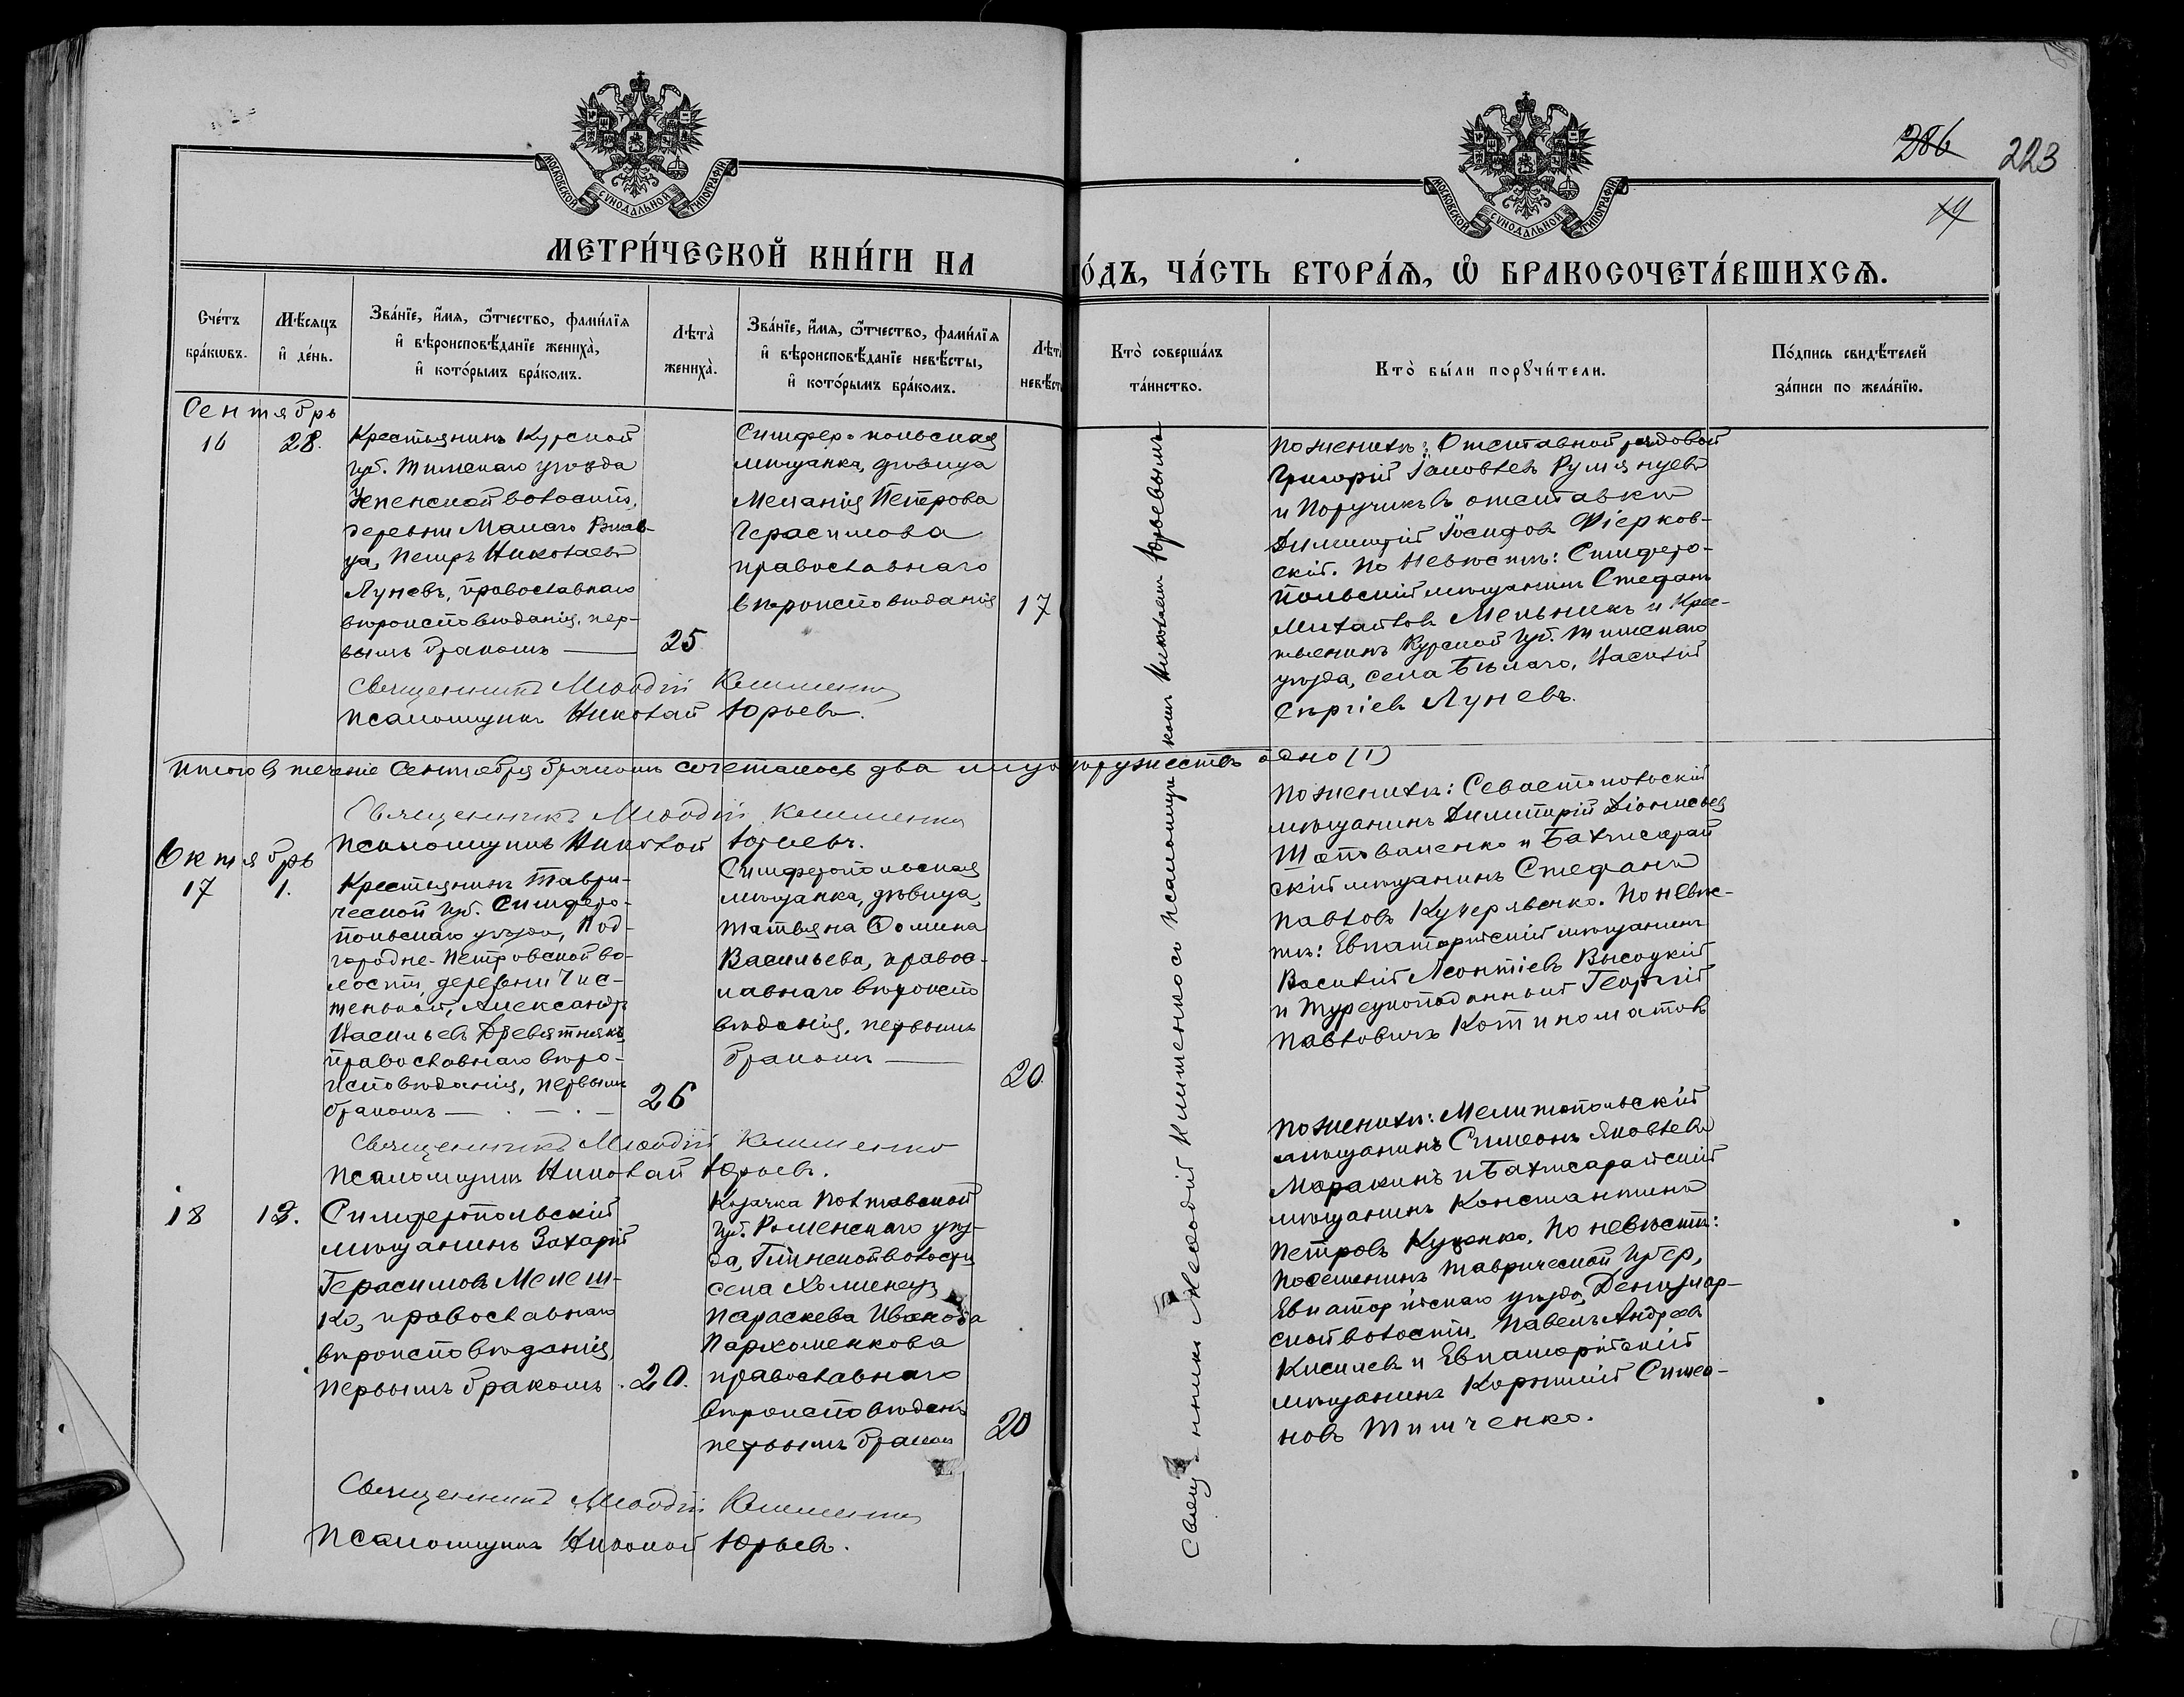 МОСКОВСКОЙ СѴНОДАЛЬНОЙ ТИПОГРАФІИ
МОСКОВСКОЙ СѴНОДАЛЬНОЙ ТИПОГРАФІИ
286 223
14
МЕТРИ́ЧЕСКОЙ КНИ́ГИ НА
ГО́ДЪ, ЧА́СТЬ ВТОРА́Я, Ѽ БРАКОСОЧЕТА́ВШИХСЯ.
Сче́тъ бра́кωвъ.
Мѣ́сяцъ и҆ де́нь.
Зва́нїе, и҆́мя, ѻ҆́тчество, фами́лїя
и҆ вѣроисповѣ́данїе жениха̀,
и҆ кото́рымъ бра́комъ.
Лѣта̀
жениха̀.
Зва́нїе, и҆́мя, ѻ҆́тчество, фами́лїя
и҆ вѣроисповѣ́данїе невѣ́сты,
и҆ кото́рымъ бра́комъ.
Лѣта
невѣст
Кто̀ соверша́лъ
та́инство.
Кто̀ бы́ли порꙋчи́тели.
По́дпись свидѣ́телей
за́писи по жела́нїю.
Сентябрь
16 28.
Крестьянинъ Курской
губ. Тимскаго уѣзда
Успенской волости,
деревни Малаго Ржав-
ца, Петръ Николаевъ
Луневъ, православнаго
вѣроисповѣданія, пер-
вымъ бракомъ — 25
Симферопольская
мѣщанка, дѣвица
Меланія Петрова
Герасимова
православнаго
вѣроисповѣданія 17
По женихѣ: Отставной рядовой
Григорій Іаковлевъ Румянцевъ
и Поручикъ въ отставкѣ
Димитрій Іосифовъ Фіерков-
скій. По невѣстѣ: Симферо-
польскій мѣщанинъ Стефанъ
Михайловъ Мельникъ и Крес-
тьянинъ Курской губ. Тимскаго
уѣзда, села Бѣлаго, Василій
Сергіевъ Луневъ.
Священникъ Меѳодій Клименко
Псаломщикъ Николай Юрьевъ.
Итого въ теченіе Сентября бракомъ сочеталось два лица супружествъ одно (1)
Священникъ Меѳодій Клименко
Псаломщикъ Николай Юрьевъ.
Октябрь
17 1.
Крестьянинъ Таври-
ческой губ. Симферо-
польскаго уѣзда, Под-
городне-Петровской во-
лости, деревни Чис-
тенькой, Александръ
Васильевъ Древятнякъ
православнаго вѣро-
исповѣданія, первымъ
бракомъ — 26
Симферопольская
мѣщанка, дѣвица,
Татьяна Ѳомина
Васильева, правос-
лавнаго вѣроиспо
вѣданія, первымъ
бракомъ — 20.
По женихѣ: Севастопольскій
мѣщанинъ Димитрій Діонисьев
Шаповаленко и Бахчисарай
скій мѣщанинъ Стефанъ
Павловъ Кучерявенко. По невѣс-
тѣ: Евпаторійскій мѣщанинъ
Василій Леонтіевъ Высоцкій
и Турецкоподданный Георгій
Павловичъ
Священникъ Меѳодій Клименко
Псаломщикъ Николай Юрьевъ.
18 12.
Симферопольскій
мѣщанинъ Захарій
Герасимовъ Мелеш-
ко, православнаго
вѣроисповѣданія,
первымъ бракомъ. 20.
Козачка Полтавской
губ. Роменскаго уѣз-
да, Глинской волости
села Хоминецъ
Параскева Иванова
Пархоменкова
православнаго
вѣроисповѣдан.
первымъ браком 20
По женихѣ: Мелитопольскій
мѣщанинъ Симеонъ Яковлевъ
Маракинъ и Бахчисарайскій
мѣщанинъ Константинъ
Петровъ Куценко. По невѣстѣ:
Поселянинъ Таврической Губер,
Евпаторійскаго уѣзда,
ской волости, Павелъ Андреевъ
Киселевъ и Евпаторійскій
мѣщанинъ Корнилій Симео-
новъ Тимченко.
Священникъ Меѳодій Клименко
Псаломщикъ Николай Юрьевъ.
Священникъ Меѳодій Клименко съ псаломщикомъ Николаемъ Юрьевымъ